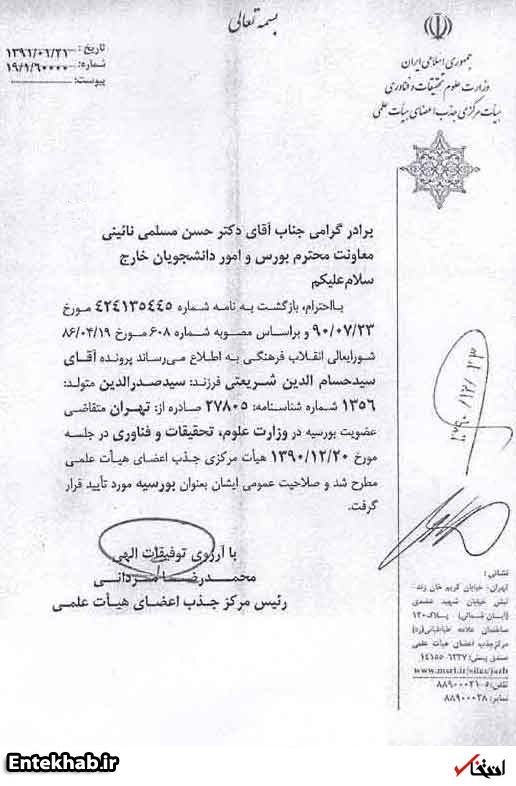 بسمه تعالی
جمهوری اسلامی ایران
وزارت علوم تحقیقات و فناوری
هیأت مرکزی جذب اعضای هیأت علمی
تاریخ :
شماره:
۱۹/۱/۶۰۰۰۰
پیوست:
برادر گرامی جناب آقای دکتر حسن مسلمی نائینی
معاونت محترم بورس و امور دانشجویان خارج
سلام‌علیکم
بااحترام، بازگشت به نامه شماره ۴۲۴۱۳۵۴۴۵ مورخ
۹۰/۰۷/۲۳ و براساس مصوبه شماره ۶۰۸ مورخ ۸۶/۰۴/۱۹
شورایعالی انقلاب فرهنگی به اطلاع می‌رساند پرونده آقای
سیدحسام الدین شریعتی فرزند: سیدصدرالدین متولد:
۱۳۵۶ شماره شناسنامه: ۲۷۸۰۵ صادره از: تهران متقاضی
عضویت بورسیه در وزارت علوم، تحقیقات و فناوری در جلسه
مورخ ۱۳۹۰/۱۲/۲۰ هیأت مرکزی جذب اعضای هیأت علمی
مطرح شد و صلاحیت عمومی ایشان بعنوان بورسیه مورد تأیید قرار
گرفت.
با آرزوی توفیقات الهی
محمدرضا مردانی
رئیس مرکز جذب اعضای هیأت علمی
۱۳۹۰/۱۲/۲۳
نشانی :
تهران- خیابان کریم خان زند-
نبش خیابان شهید عضدی
(آبان شمالی) پلاک ۱۲۰
ساختمان علامه طباطبائی(ره)
مرکزجذب اعضای هیأت علمی
صندوق پستی: ۶۳۳۷-۱۴۱۵۵
تلفن: ۵-۸۸۹۰۰۰۲۱
نمابر: ۸۸۹۰۰۰۲۸
Entekhab.ir
انتخاب